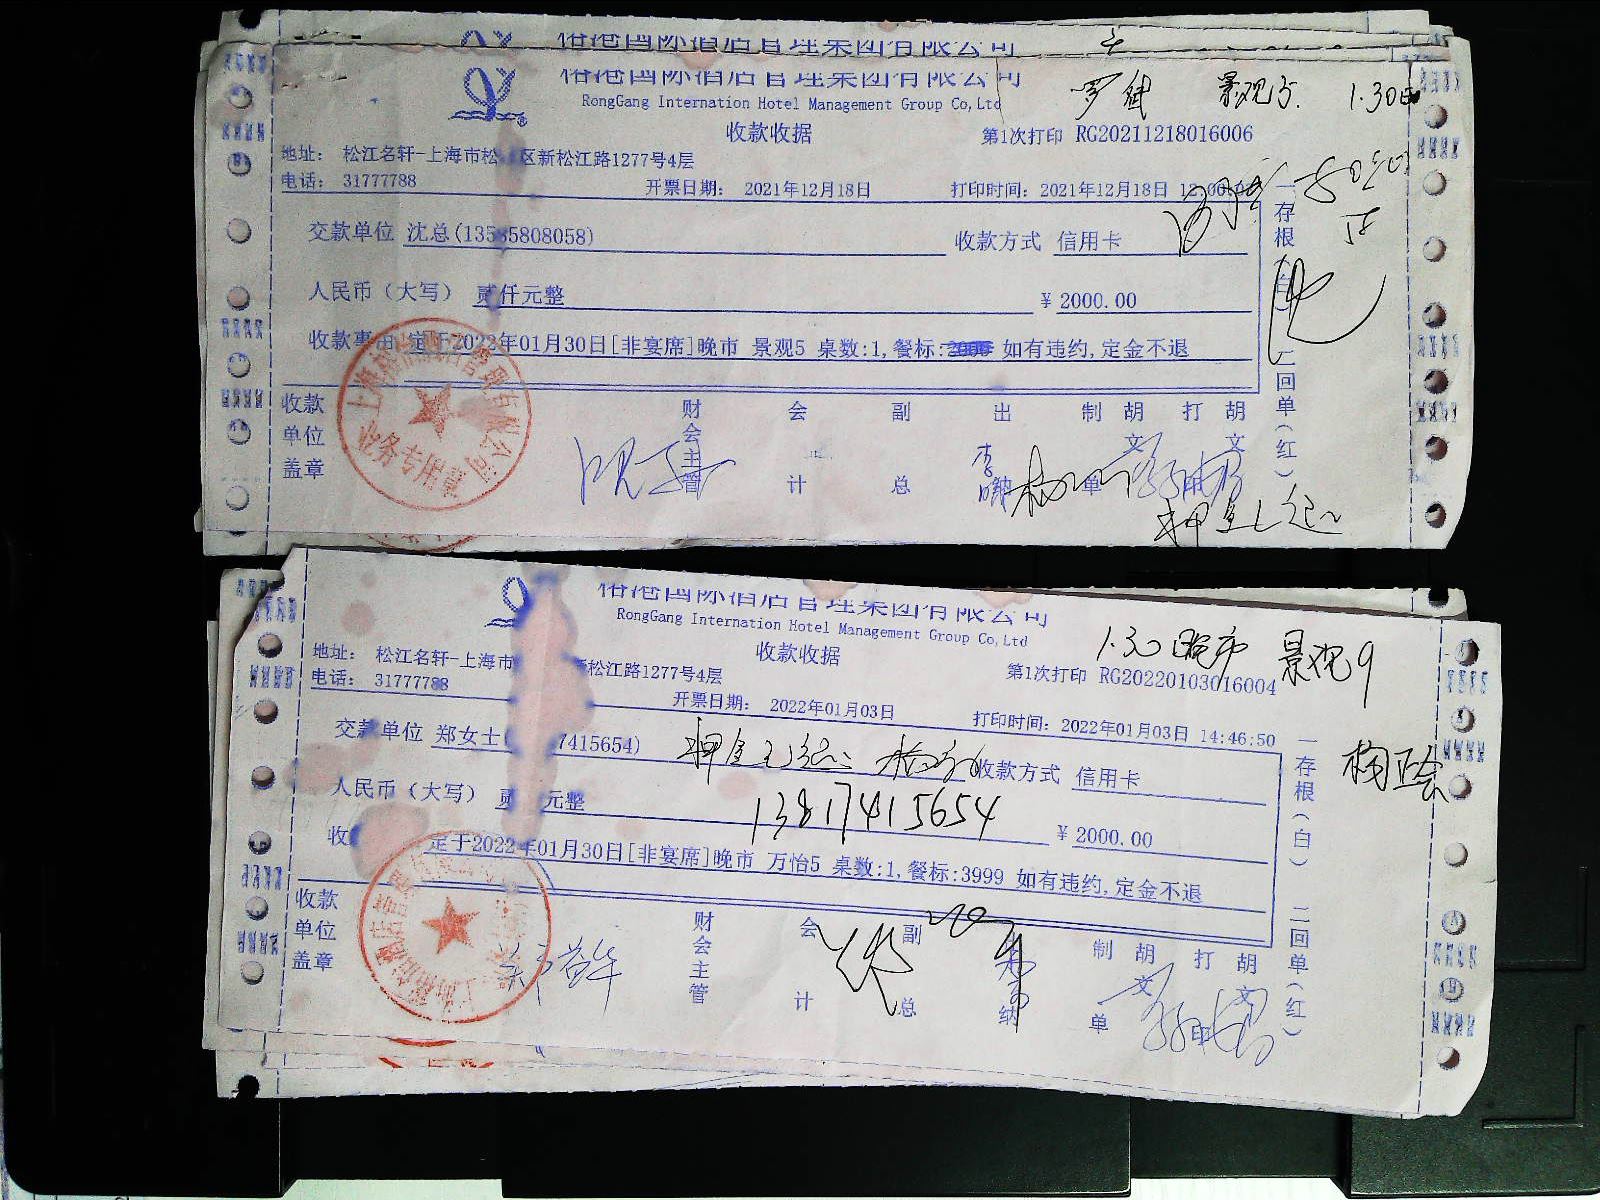 国际酒店管理集团有限公司
国际酒店管理集团有限公司
RongGang Internation Hotel Management Group Co,Ltd
景观5. 1.30日
收款收据
第1次打印 RG20211218016006
地址： 松江名轩-上海市松 区新松江路1277号4层
电话： 31777788
开票日期： 2021年12月18日
打印时间：2021年12月18日
交款单位 沈总(13585808058)
收款方式 信用卡
人民币（大写） 贰仟元整
￥2000.00
收款事由 定于2022年01月30日[非宴席]晚市 景观5 桌数:1,餐标: 如有违约,定金不退
一存根（白） 二回单（红）
收款单位盖章
财会主管
会计
副总
出纳
制单 胡文
打 胡文
业务专用章
国际酒店管理集团有限公司
RongGang Internation Hotel Management Group Co,Ltd
1.30 晚市 景观9
收款收据
第1次打印 RG20220103016004
地址： 松江名轩-上海市 新松江路1277号4层
电话： 31777788
开票日期： 2022年01月03日
打印时间：2022年01月03日 14:46:50
交款单位 郑女士( 7415654)
收款方式 信用卡
人民币（大写） 贰 元整
13817415654
￥2000.00
收 定于2022年01月30日[非宴席]晚市 万怡5 桌数:1,餐标:3999 如有违约,定金不退
一存根（白） 二回单（红）
收款单位盖章
财会主管
会计
副总
纳
制单 胡文
打 胡文